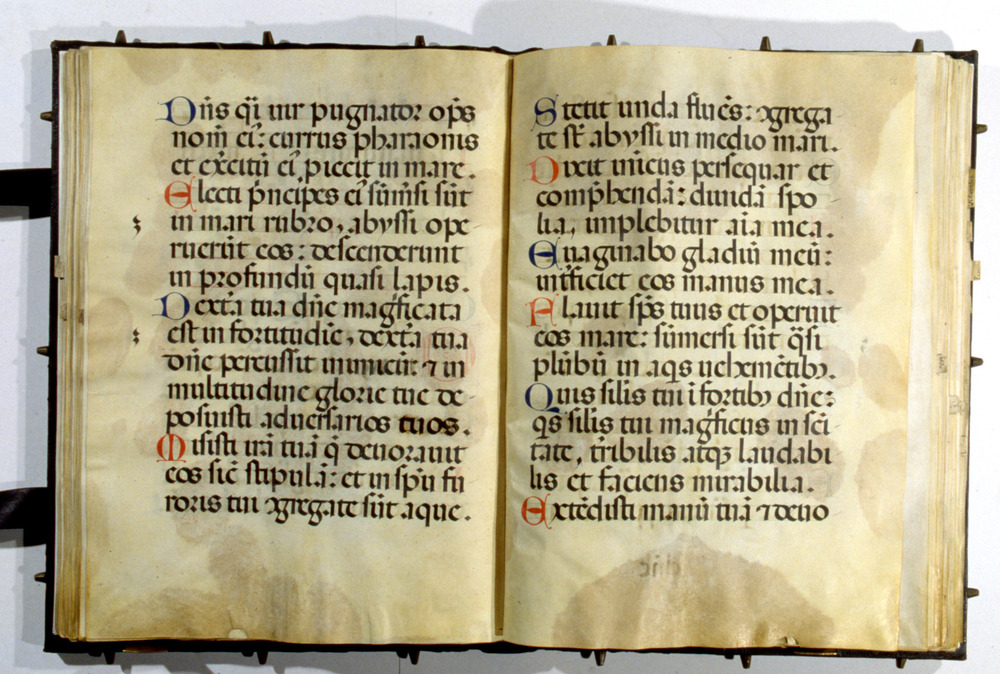 Dñs q̃i uir pugnator op̃s
nom̃ ei᷒: currus pharaonis
et ex̃citũ ei᷒ piecit in mare.
Electi p̃ncipes ei᷒ sũm̃si sũt
in mari rubro, abyssi ope
ruerũt eos: descenderunt
in profundũ quasi lapis.
Dext̃a tua dñe mag̃ficata
est in fortitudĩe, dext̃a tua
dñe percussit inimicũ: ⁊ in
multitudine glorie tue de-
posuisti aduersarios tuos.
Misisti irã tuã q̃ deuorauit
eos sic̃ stipulã: et in sp̃u fu
roris tui ꝯgregate sũt aque.
Stetit unda fluẽs: ꝯgrega-
te st̃ abyssi in medio mari.
Dixit inicus persequar et
comp̃hendã: diuidã spo-
lia, implebitur aĩa mea.
Euaginabo gladiũ meũ:
int̃ficiet eos manus mea.
Flauit sp̃s tuus et operuit
eos mare: sũmersi sũt q̃si
plũbũ in aq̃s uehemẽtibꝫ.
Quis silis tui ĩ fortibꝫ dñe:
q̃s silis tui mag̃ficus in sc̃i-
tate, t̃ribilis atqꝫ laudabi
lis et faciens mirabilia.
Extẽdisti manũ tuã ⁊ deuo